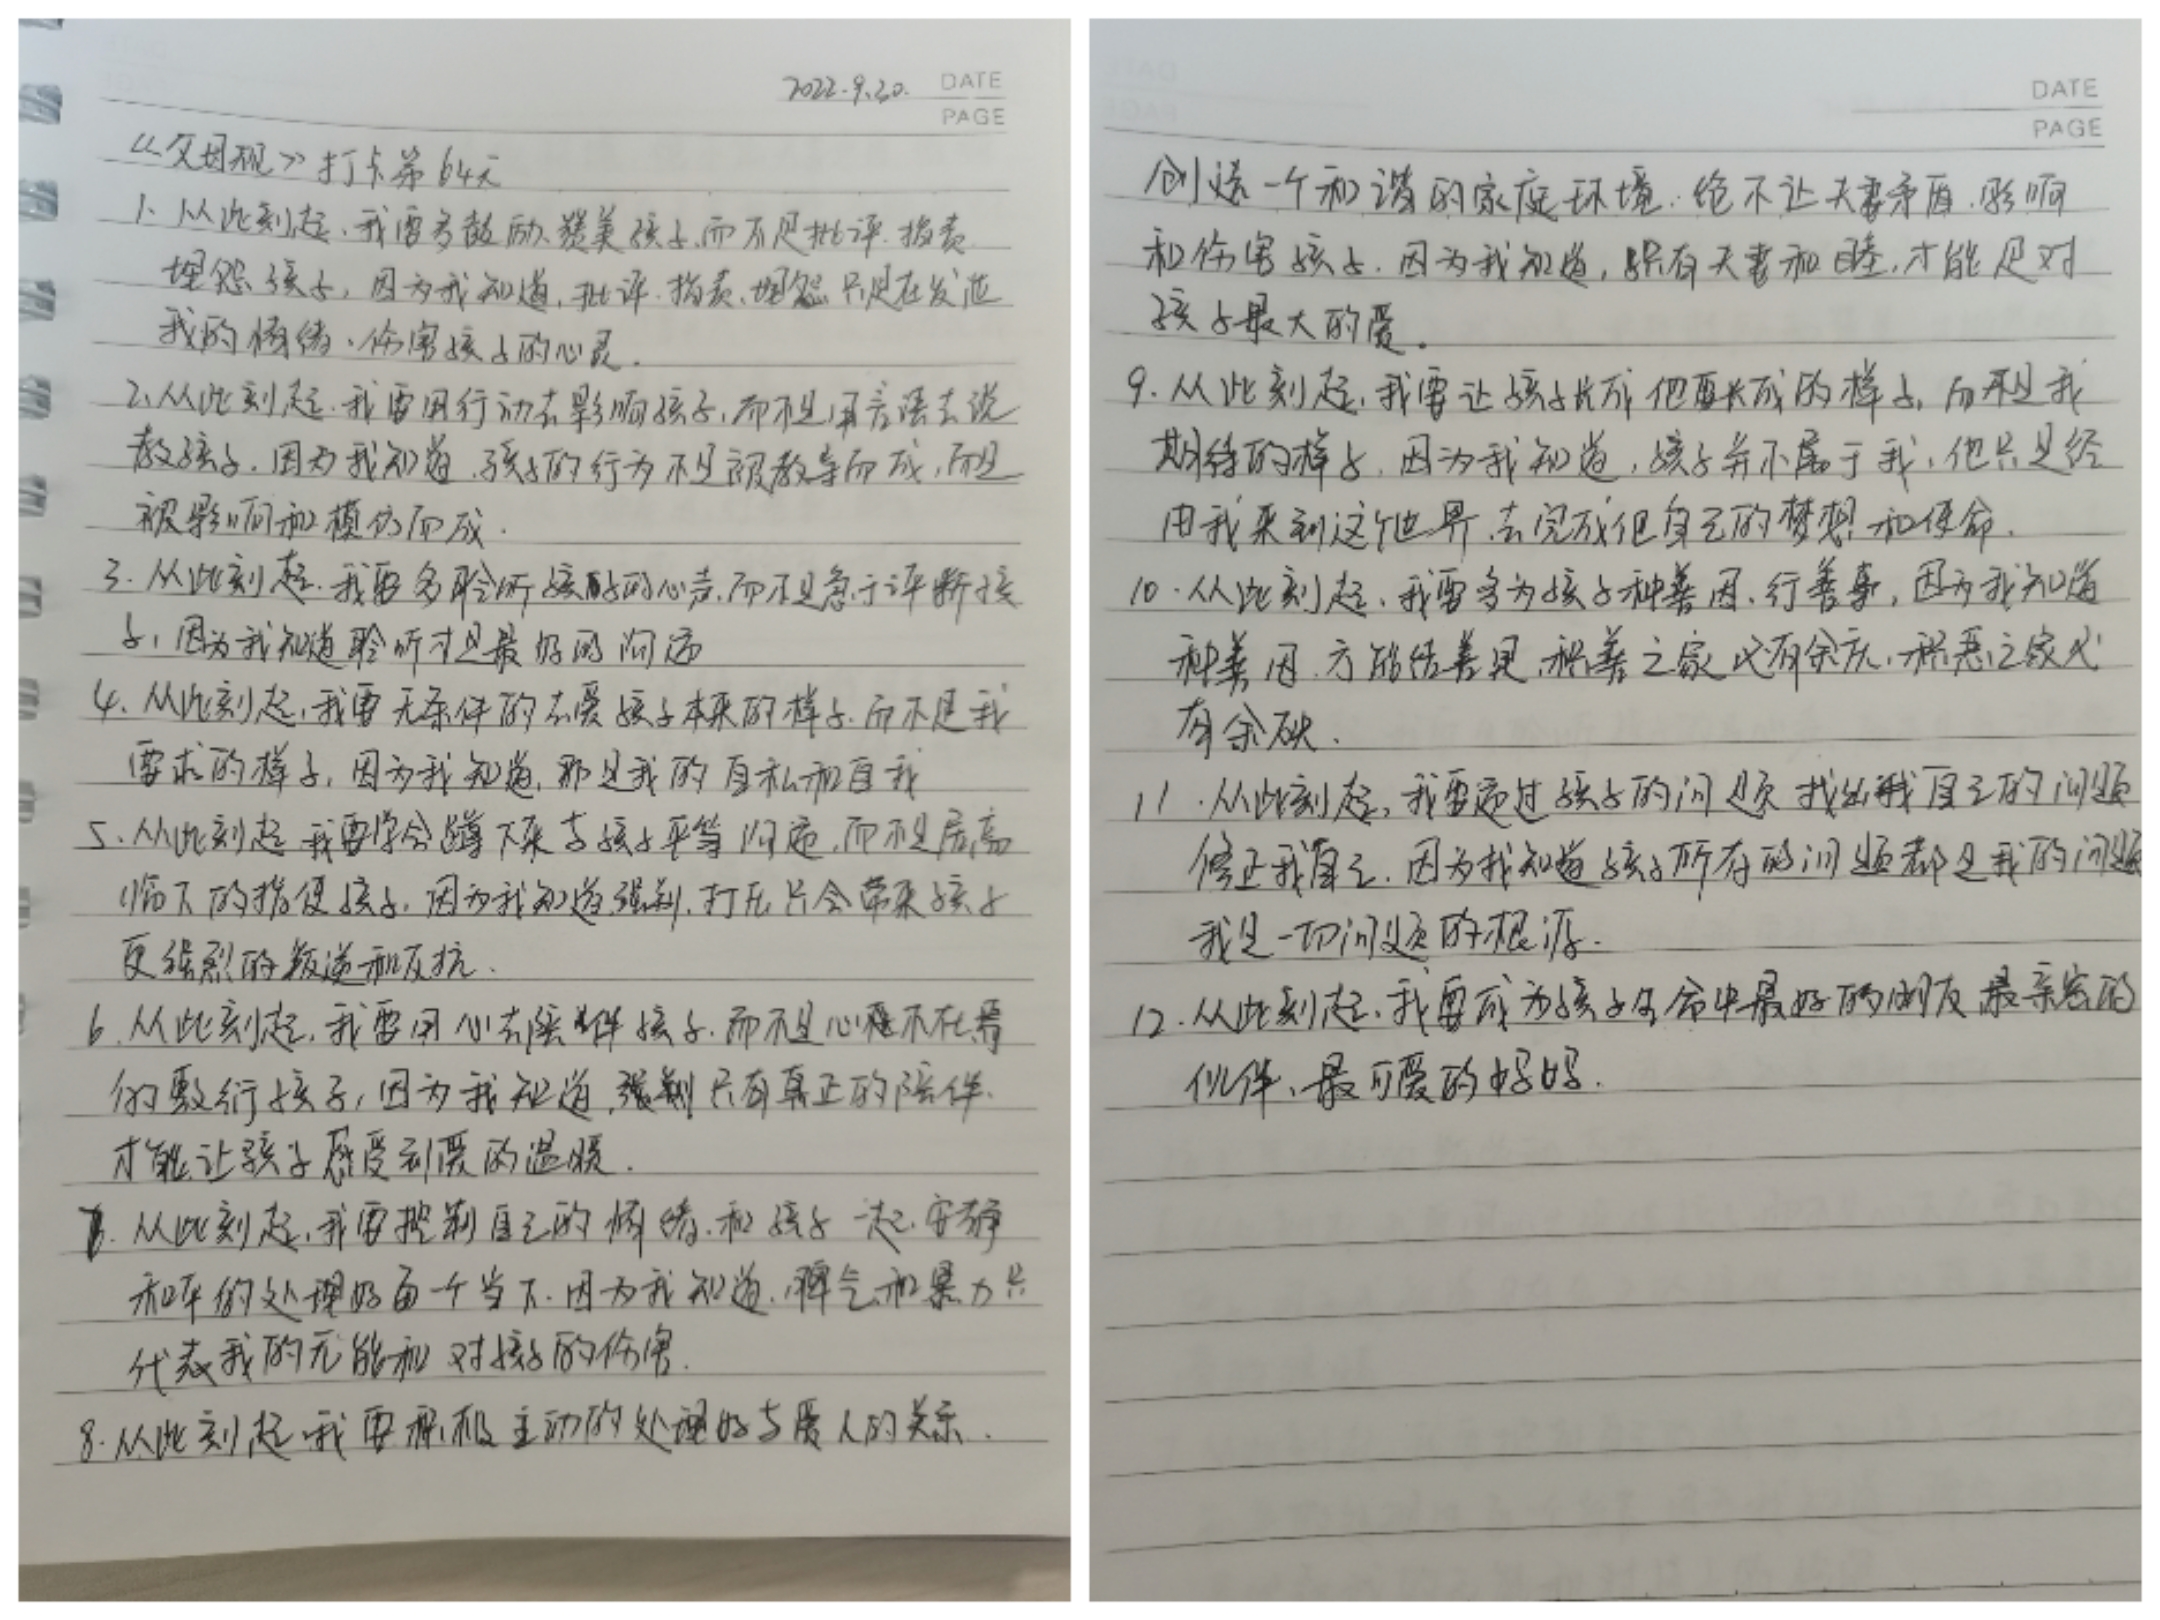 2022.9.30.
DATE
PAGE
《父母规》打卡第64天
1、从此刻起、我要多鼓励、赞美孩子,而不是批评、指责
埋怨孩子,因为我知道,批评、指责、埋怨只是在发泄
我的情绪、伤害孩子的心灵.
2、从此刻起、我要用行动去影响孩子,而不是用言语去说
教孩子.因为我知道、孩子的行为不是被教导而成,而是
被影响和模仿而成.
3.从此刻起.我要多聆听孩子的心声,而不是急于评断孩
子,因为我知道聆听才是最好的沟通
4.从此刻起,我要无条件的去爱孩子本来的样子.而不是我
要求的样子,因为我知道,那是我的自私和自我
5.从此刻起我要学会蹲下来与孩子平等沟通,而不是居高
临下的指使孩子,因为我知道强制、打压只会带来孩子
更强烈的叛逆和反抗.
6.从此刻起,我要用心去陪伴孩子.而不是心程不在焉
的敷衍孩子,因为我知道,只有真正的陪伴.
才能让孩子感受到爱的温暖.
7.从此刻起,我要控制自己的情绪.和孩子一起.安静
和平的处理好每一个当下.因为我知道.脾气和暴力只
代表我的无能和对孩子的伤害.
8.从此刻起我要积极主动的处理好与爱人的关系.
DATE
PAGE
创造一个和谐的家庭环境.绝不让夫妻矛盾.影响
和伤害孩子.因为我知道,只有夫妻和睦,才能是对
孩子最大的爱.
9.从此刻起,我要让孩子长成他要长成的样子,而不是我
期待的样子,因为我知道,孩子并不属于我,他只是经
由我来到这个世界.去完成他自己的梦想和使命.
10.从此刻起、我要多为孩子种善因、行善事,因为我知道
种善因.方能结善果.积善之家必有余庆.积恶之家必
有余殃.
11.从此刻起,我要通过孩子的问题找出我自己的问题
修正我自己.因为我知道孩子所有的问题都是我的问题
我是一切问题的根源.
12.从此刻起、我要成为孩子生命中最好的朋友最亲密的
伙伴、最可爱的妈妈.